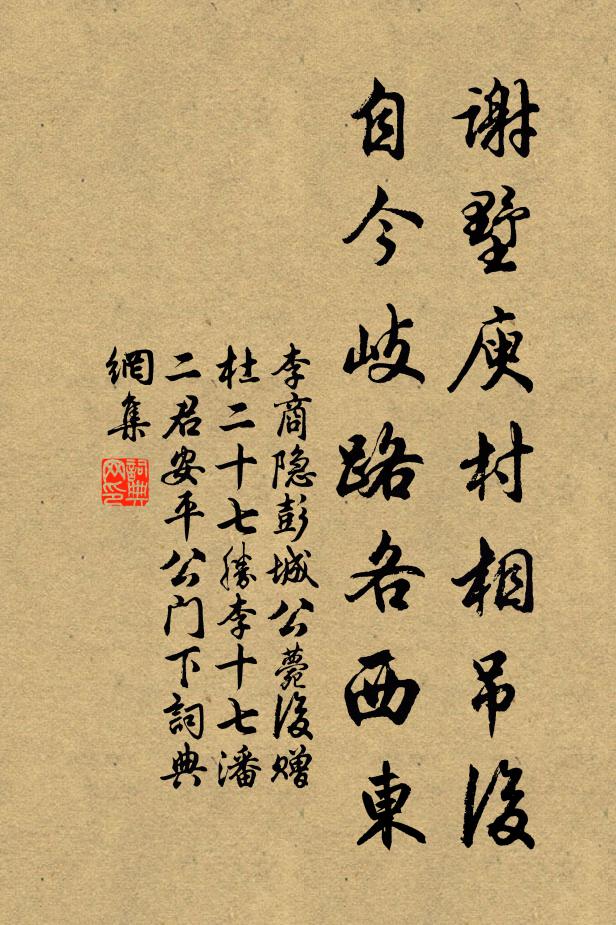 謝墅庾村相吊後
自今岐路各西東
李商隐彭城公薨後赠
杜二十七勝李十七潘
二君安平公门下詞典
網集
詞典網印